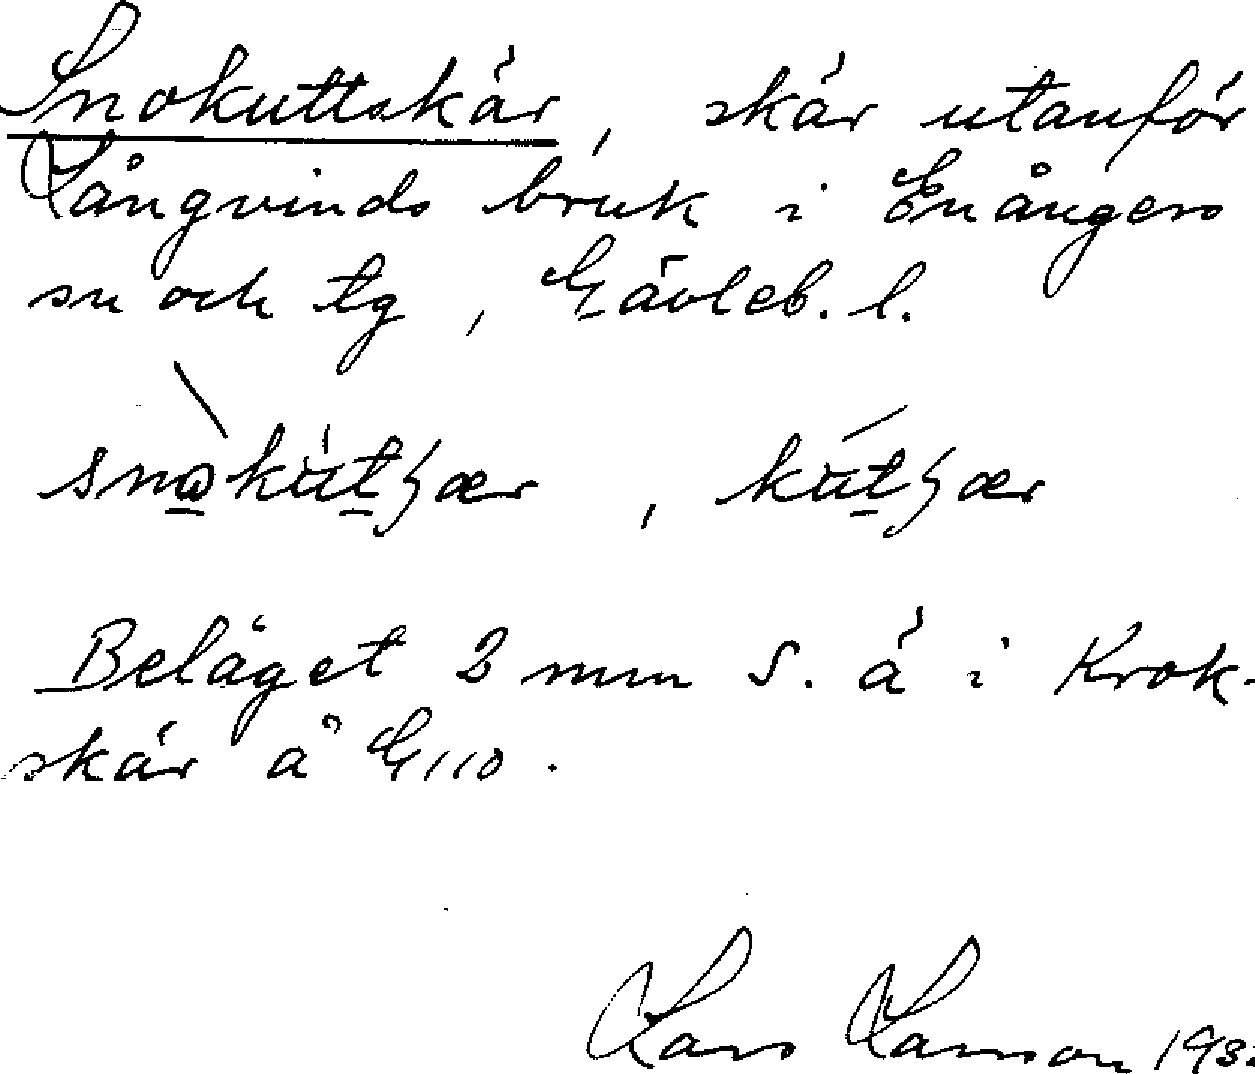 Snokuttskär, skär utanför
Långvinds bruk i Enångers
sn och tg, Gävleb. l.
Beläget 2 mm S. ä i Krok-
skär å G110.
Lars Larsson